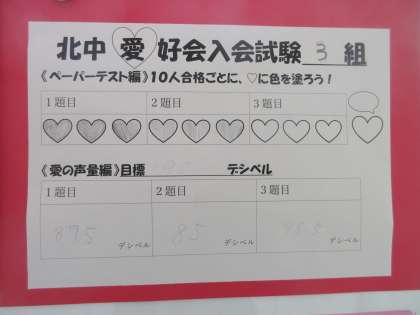 北中 愛 好会入会試験 3 組
《ペーパーテスト編》10人合格ごとに、♡に色を塗ろう！
1題目 2題目 3題目
《愛の声量編》目標 デシベル
1題目 2題目 3題目
875 デシベル 85 デシベル デシベル